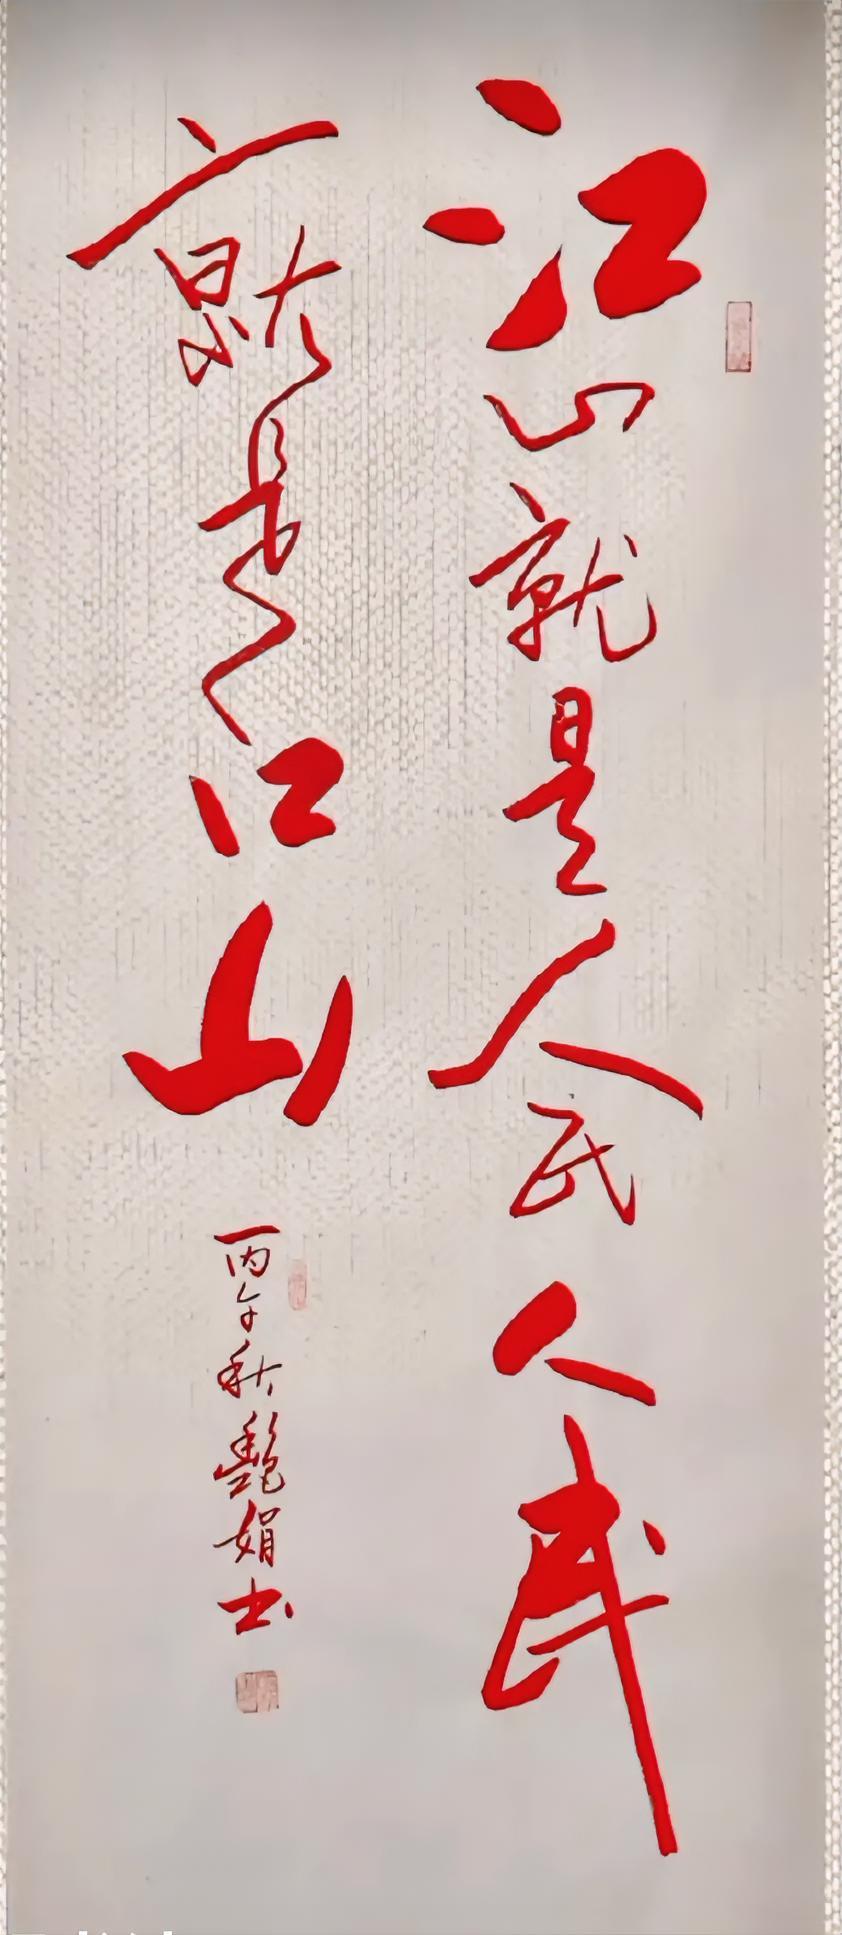 江山就是人民人民
就是江山
丙午秋艳娟书